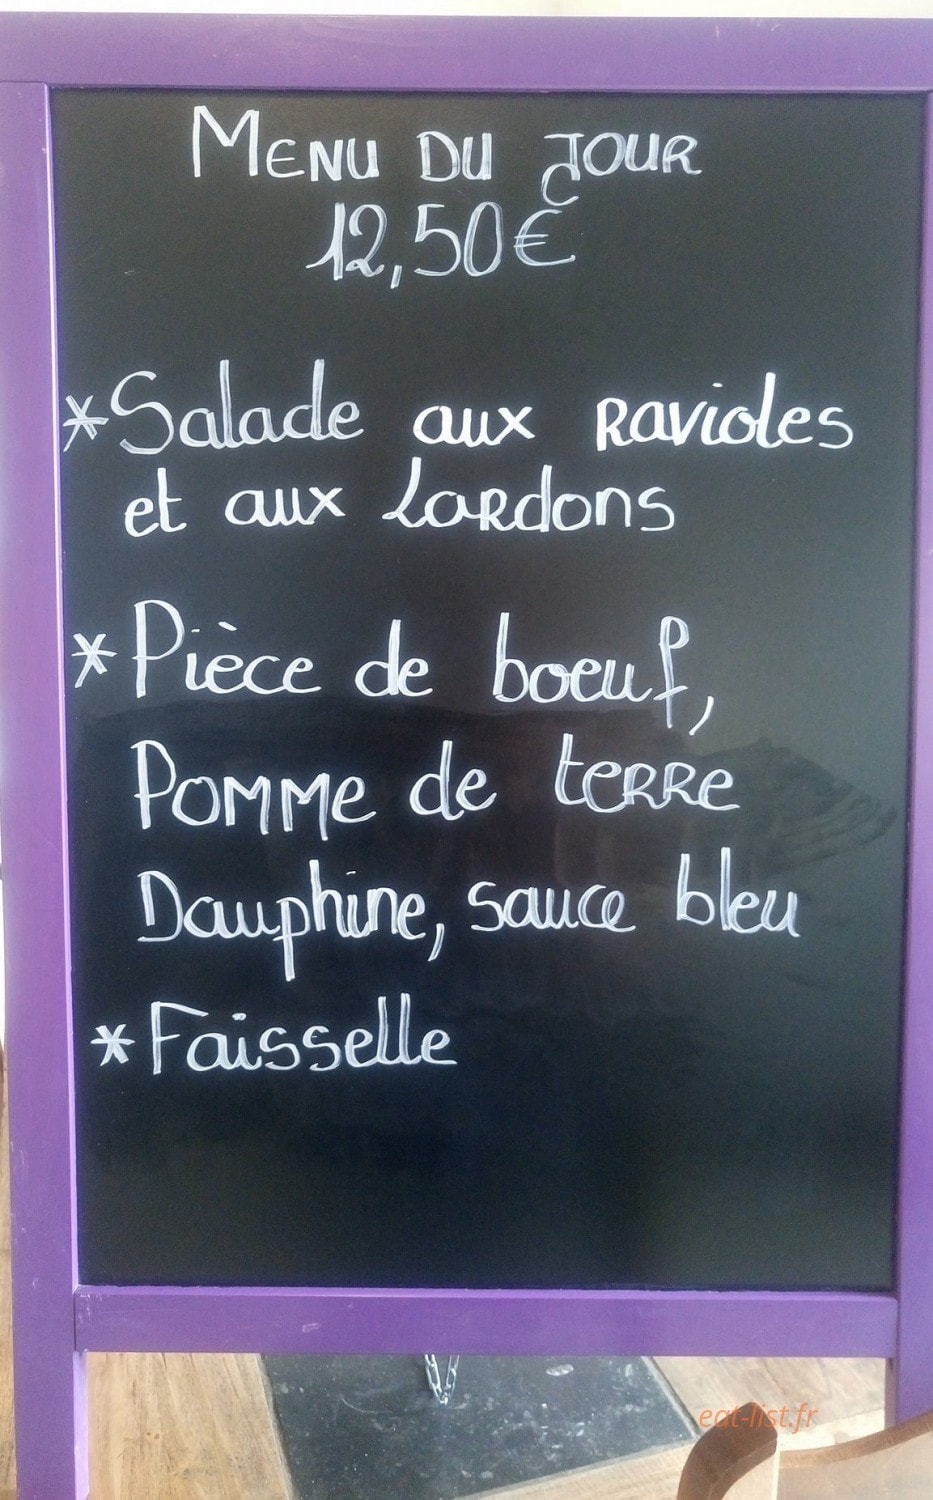 MENU DU JOUR
12,50€
*Salade aux Ravioles
et aux Lardons
*Pièce de boeuf,
Pomme de terre
Dauphine, sauce bleu
*Faisselle
eat-list.fr